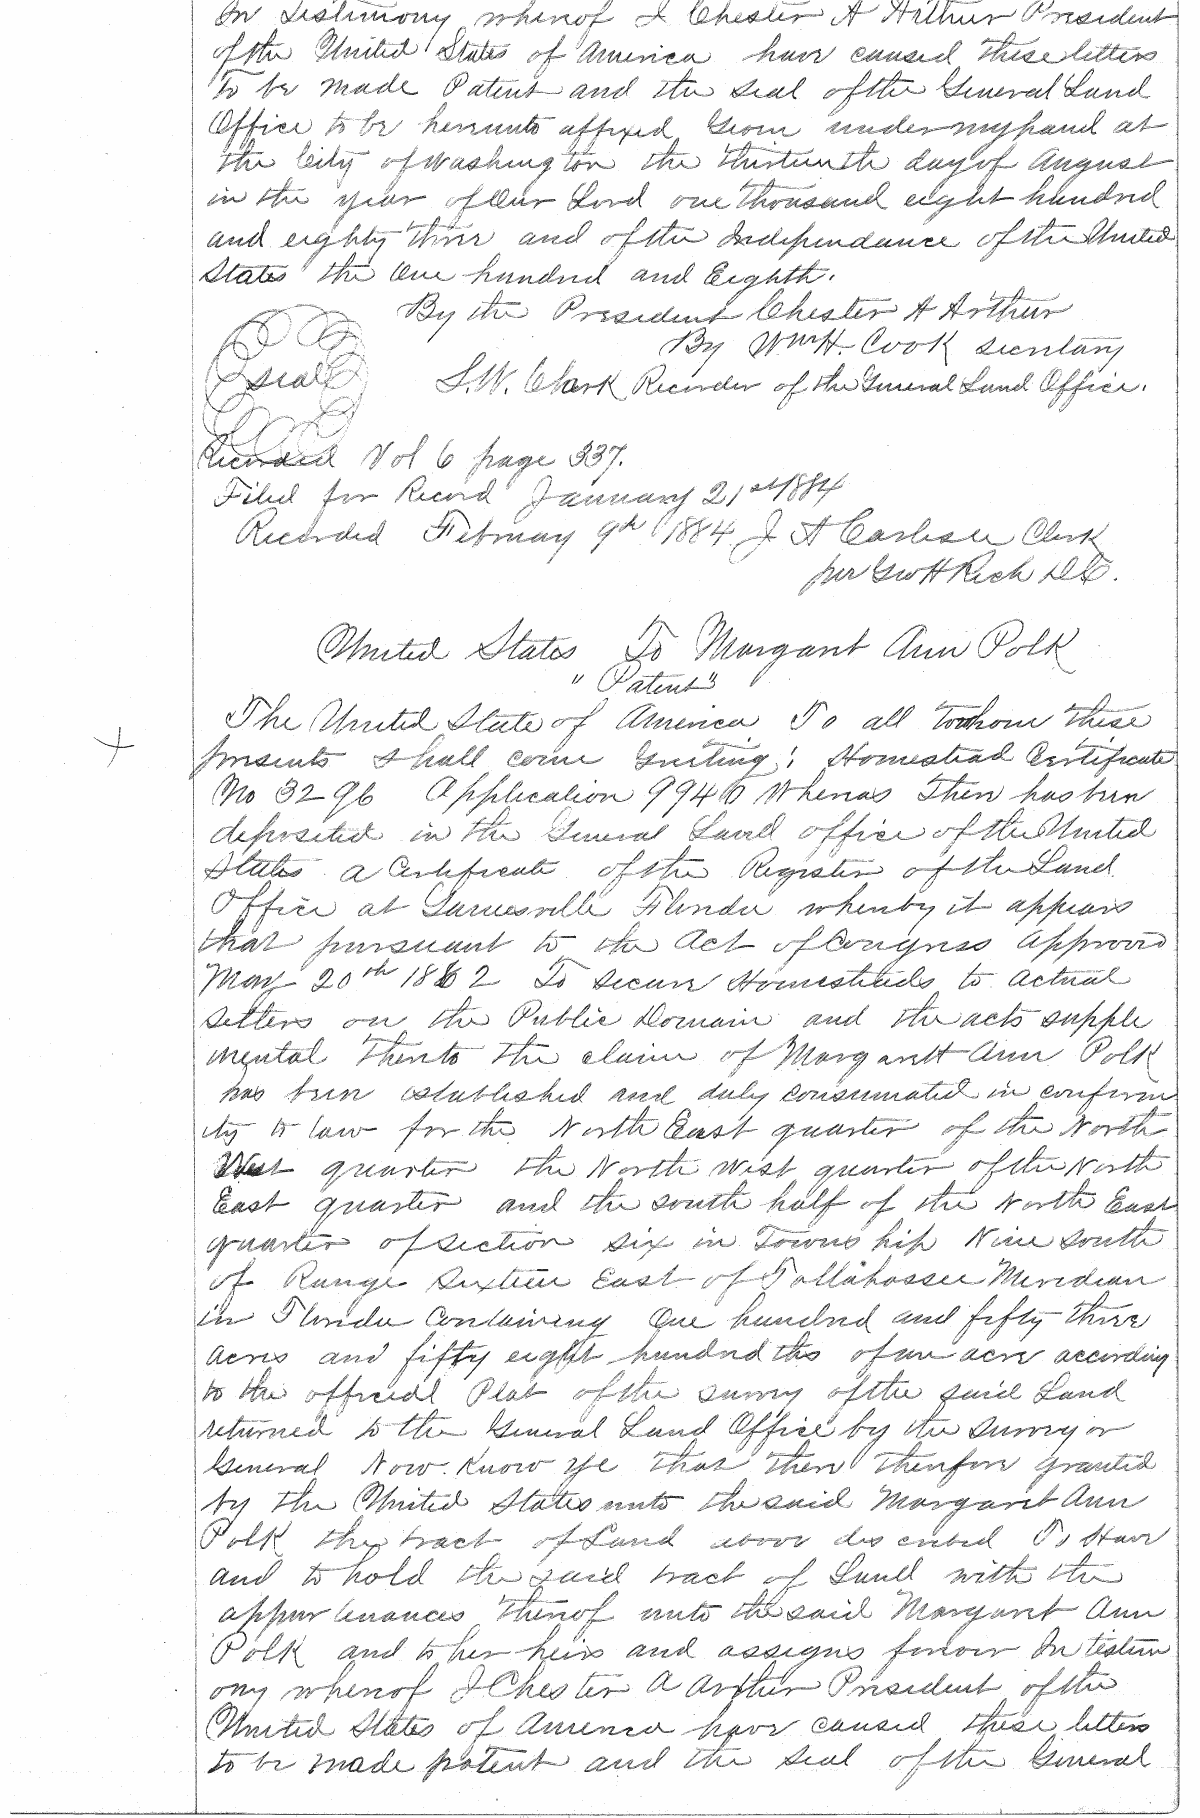 In Testimony whereof I Chester A Arthur President
of the United States of America have caused these letters
To be made Patent and the seal of the General Land
Office to be hereunto affixed Given under my hand at
the City of Washington the thirteenth day of August
in the year of Our Lord one thousand eight hundred
and eighty three and of the Independance of the United
States the One hundred and Eighth.
By the President Chester A Arthur
By Wm H. Cook secretary
seal
S.W. Clark Recorder of the General Land Office.
Recorded Vol 6 page 337.
Filed for Record January 21st 1884
Recorded February 9th 1884 J A Carlisle Clerk
per Geo H Rich D.C.
United States To Margaret Ann Polk
"Patent"
The United State of America To all to whom these
presents shall come Greeting; Homestead Certificate
No 3296 Application 9940 Whereas There has been
deposited in the General Land office of the United
States a Certificate of the Register of the Land
Office at Gainesville Florida whereby it appears
that pursuant to the Act of Congress Approved
May 20th 1862 To secure Homesteads to actual
settlers on the Public Domain and the acts supple
mental thereto the claim of Margarett Ann Polk
has been established and duly consumated in conform
ity to law for the North East quarter of the North
West quarter the North West quarter of the North
East quarter and the south half of the North East
quarter of section six in Township Nine south
of Range Sixteen East of Tallahassee Meridian
in Florida Containing One hundred and fifty three
acres and fifty eight hundredths of an acre according
to the official Plat of the survey of the said Land
returned to the General Land Office by the Surveyor
General Now Know Ye that there therefore granted
by the United States unto the said Margaret Ann
Polk the tract of Land above described To Have
and to hold the said tract of Land with the
appurtenances thereof unto the said Margaret Ann
Polk and to her heirs and assigns forever In testim
ony whereof I Chester A Arthur President of the
United States of America have caused these letters
to be made patent and the seal of the General